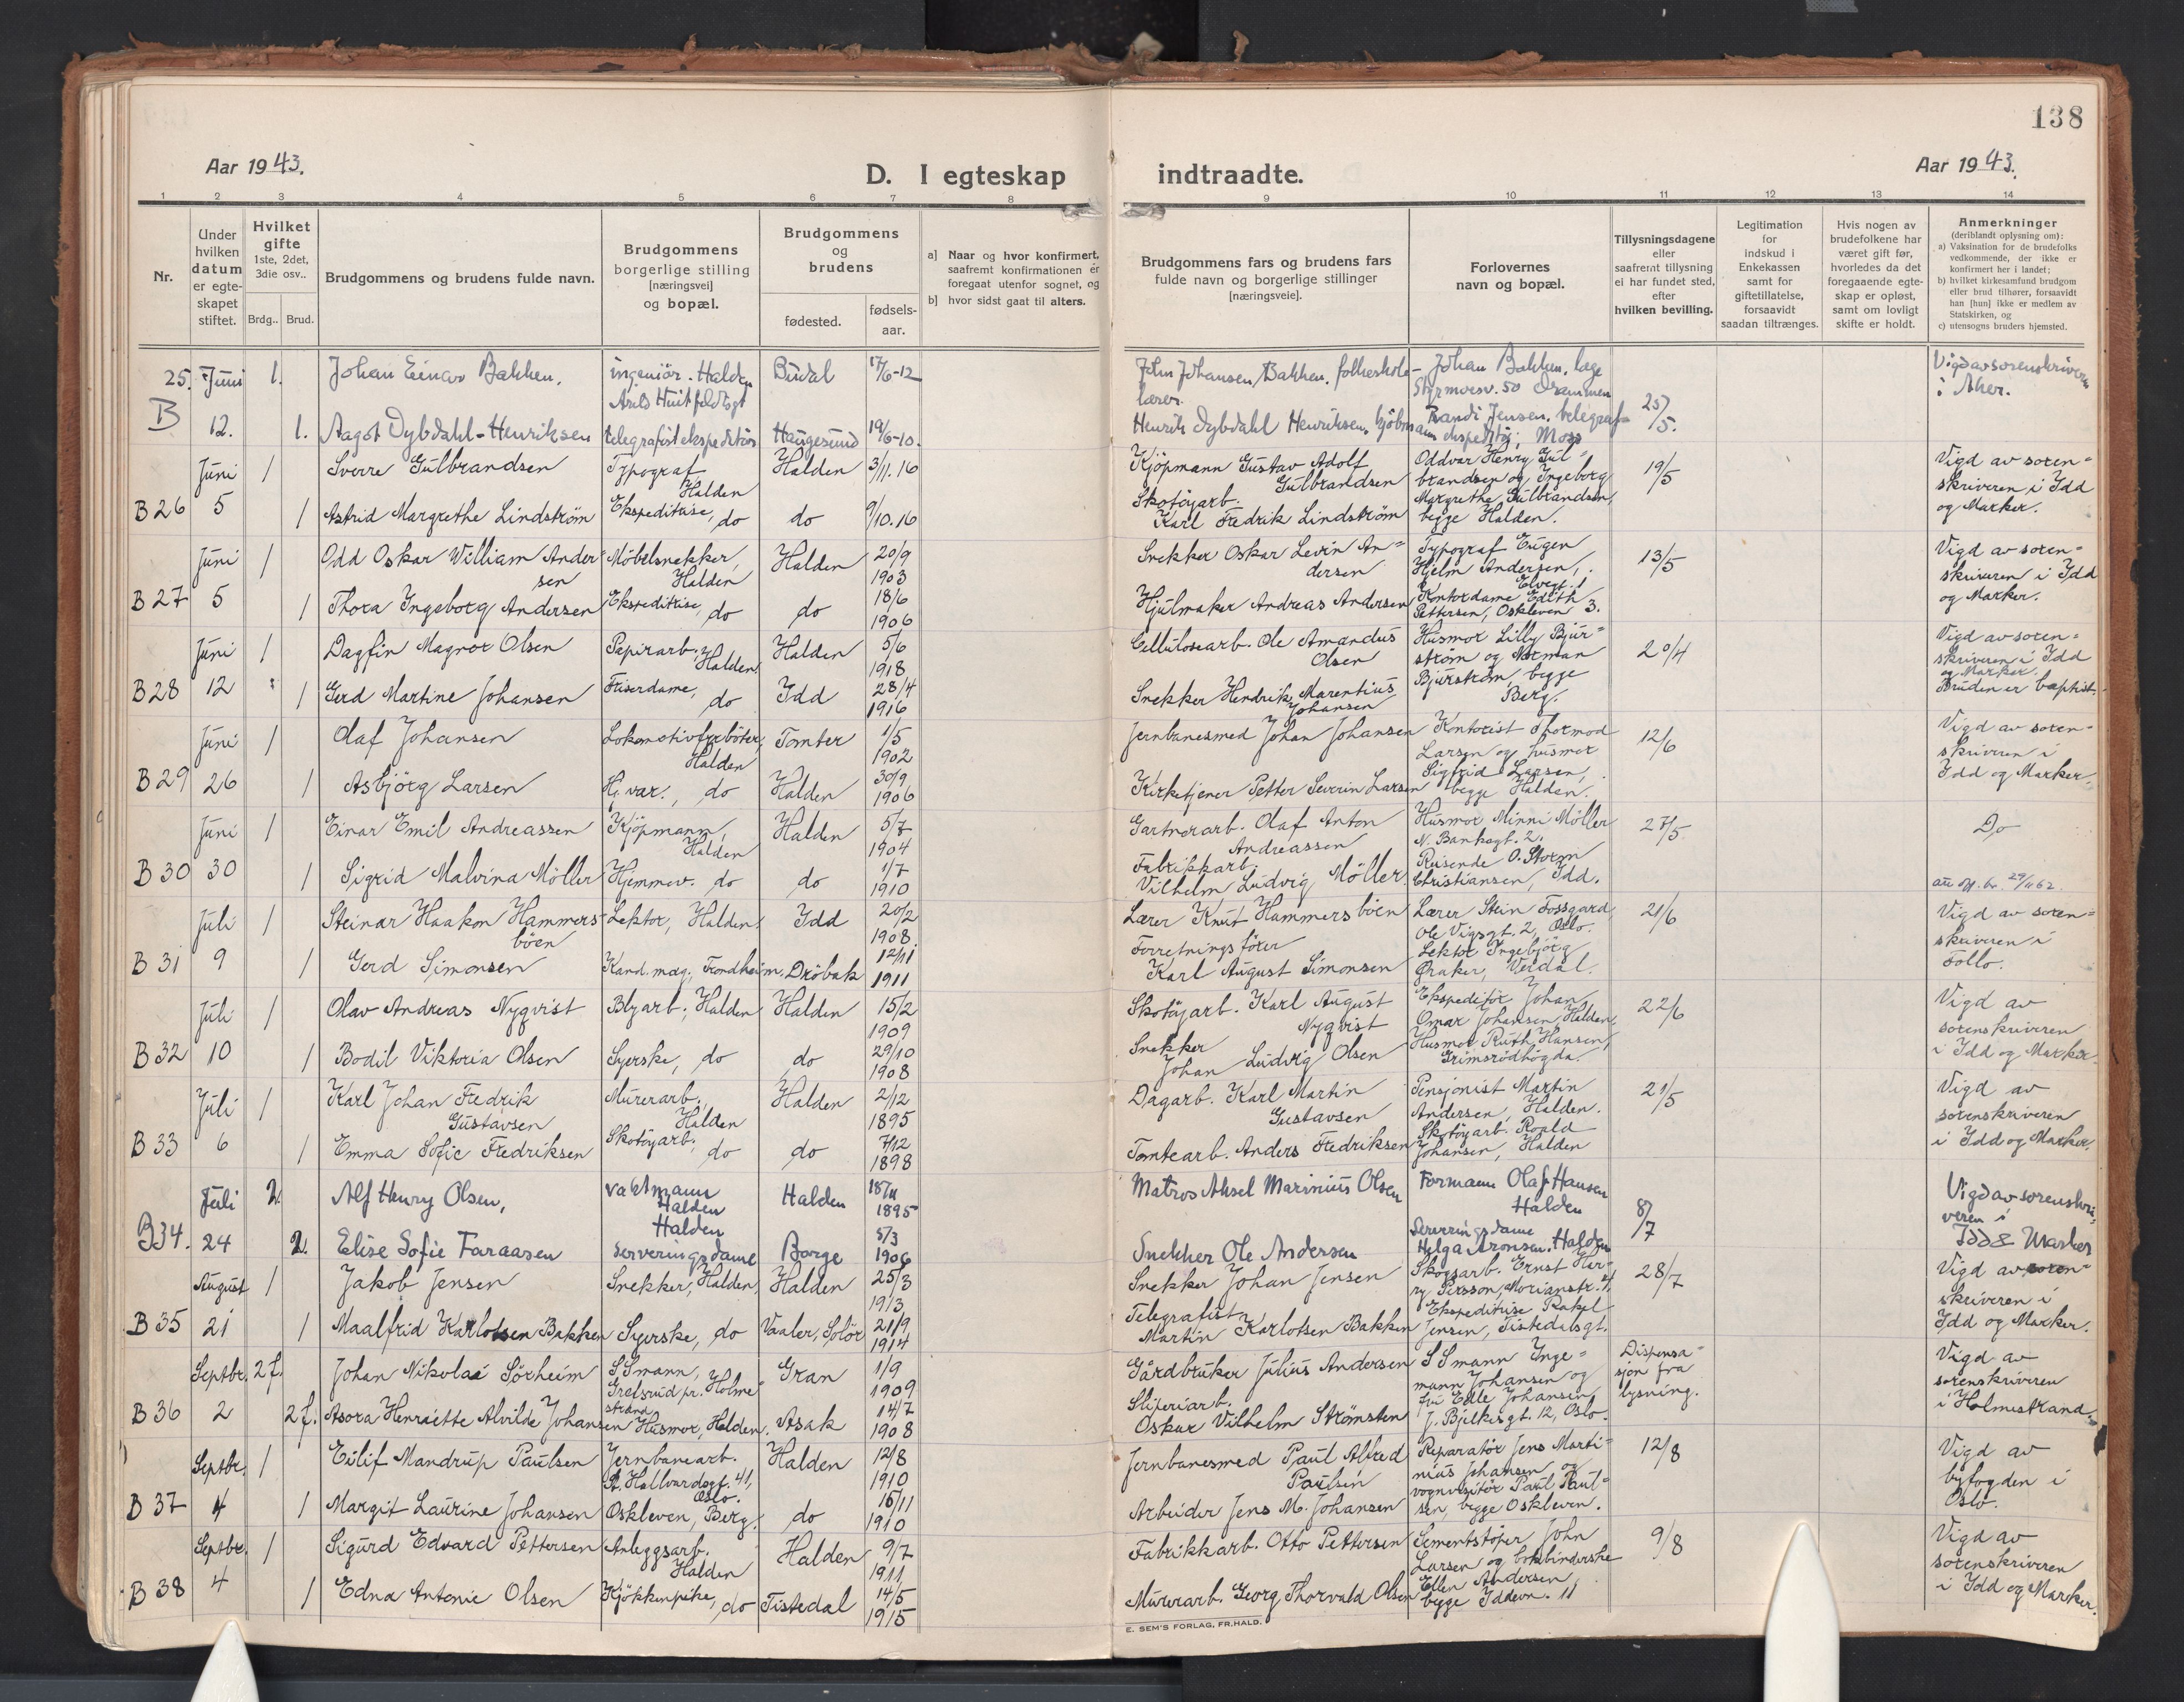 138
Aar 1943.
D. I egteskap indtraadte.
Aar 1943.
1 2 3 4 5 6 7 8 9 10 11 12 13 14
Nr.
Under hvilken datum er egteskapet stiftet.
Hvilket gifte 1ste, 2det, 3die osv..
Brdg.. Brud.
Brudgommens og brudens fulde navn.
Brudgommens borgerlige stilling [næringsvei] og bopæl.
Brudgommens og brudens
fødested.
fødselsaar.
a] Naar og hvor konfirmert, saafremt konfirmationen er foregaat utenfor sognet, og
b] hvor sidst gaat til alters.
Brudgommens fars og brudens fars fulde navn og borgerlige stillinger [næringsveie].
Forlovernes navn og bopæl.
Tillysningsdagene eller saafremt tillysning ei har fundet sted, efter hvilken bevilling.
Legitimation for indskud i Enkekassen samt for giftetillatelse, forsaavidt saadan tiltrænges.
Hvis nogen av brudefolkene har været gift før, hvorledes da det foregaaende egteskap er opløst, samt om lovligt skifte er holdt.
Anmerkninger (deriblandt oplysning om):
a) Vaksination for de brudefolks vedkommende, der ikke er konfirmert her i landet;
b) hvilket kirkesamfund brudgom eller brud tilhører, forsaavidt han [hun] ikke er medlem av Statskirken, og
c) utensogns bruders hjemsted.
25. Juni 1. Johan Einar Bakken, ingeniør. Halden Budal 17/6-12 John Johansen Bakken, folkeskolelærer. Johan Bakken, læge Styrmoesv. 50 Drammen Vigd av sorenskriveren i Aker.
B 12. 1. Aagot Dybdahl-Henriksen telegrafistekspeditrise Haugesund 19/6-10. Henrik Dybdahl Henriksen, kjöbmann Randi Jensen, telegrafekspeditör, Moss 25/5.
Juni 1 Sverre Gulbrandsen Typograf Halden Halden 3/11.16 Kjöpmann Gustav Adolf Gulbrandsen Oddvar Henry Gulbrandsen og Ingeborg 19/5 Vigd av sorenskriveren i Idd og Marker.
B 26 5 1 Astrid Margrethe Lindström Ekspeditrise, do do 9/10.16 Skotöyarb. Karl Fredrik Lindström Margrethe Gulbrandsen, begge Halden.
Juni 1 Odd Oskar William Andersen Möbelsnekker, Halden Halden 20/9 1903 Snekker Oskar Levin Andersen Typograf Eugen Hjelm Andersen, Elvegt. 1 13/5 Vigd av sorenskriveren i Idd og Marker.
B 27 5 1 Thora Ingeborg Andersen Ekspeditrise, do do 18/6 1906 Hjulmaker Andreas Andersen Kontordame Edith Pettersen, Oskleven 3.
Juni 1 Dagfin Magnor Olsen Papirarb., Halden Halden 5/6 1918 Cellulosearb. Ole Amandus Olsen Husmor Lilly Bjurström og Norman 20/4 Vigd av sorenskriveren i Idd og Marker.
B 28 12 1 Gerd Martine Johansen Friserdame, do Idd 28/4 1916 Snekker Hendrik Marentius Johansen Bjurström, begge Berg. Bruden er baptist.
Juni 1 Olaf Johansen Lokomotivfyrböter, Halden Tomter 1/5 1902 Jernbanesmed Johan Johansen Kontorist Thormod Larsen og husmor 12/6 Vigd av sorenskriveren i Idd og Marker.
B 29 26 1 Asbjörg Larsen Hj.var., do Halden 30/9 1906 Kirketjener Petter Severin Larsen Sigfrid Larsen, begge Halden.
Juni 1 Einar Emil Andreassen Kjöpmann, Halden Halden 5/7 1904 Gartnerarb. Olaf Anton Andreassen Husmor Minni Möller N. Bankegt. 2. 27/5 Do
B 30 30 1 Sigrid Malvina Möller Hjemmev. do do 1/7 1910 Fabrikkarb. Vilhelm Ludvig Möller. Reisende O. Storm Christiansen, Idd.
Juli 1 Steinar Haakon Hammersböen Lektor, Halden Idd 20/2 1908 Lærer Knut Hammersböen Lærer Stein Fossgard, Ole Vigsgt. 2, Oslo. 21/6 Vigd av sorenskriveren i Follo.
B 31 9 1 Gerd Simonsen Kand. mag., Trondheim, Dröbak 12/11 1911 Forretningsförer Karl August Simonsen Lektor Ingebjörg Øraker, Verdal.
Juli 1 Olav Andreas Nyqvist Blyarb., Halden Halden 15/2 1909 Skotöyarb. Karl August Nyqvist Ekspeditör Johan Omar Johansen, Halden, 22/6 Vigd av sorenskriveren i Idd og Marker.
B 32 10 1 Bodil Viktoria Olsen Syerske, do do 29/10 1908 Snekker Johan Ludvig Olsen Husmor Ruth Hansen, Grimsrödhögda.
Juli 1 Karl Johan Fredrik Gustavsen Murerarb., Halden Halden 2/12 1895 Dagarb. Karl Martin Gustavsen Pensjonist Martin Andersen, Halden. 21/5 Vigd av sorenskriveren i Idd og Marker.
B 33 6 1 Emma Sofie Fredriksen Skotöyarb., do do 7/12 1898 Tomtearb. Anders Fredriksen Skotöyarb. Roald Johansen, Halden
Juli 2. Alf Henry Olsen, vaktmann Halden Halden 18/11 1895 Matros Aksel Marinius Olsen Formann Olaf Hansen Halden 8/7 Vigd av sorenskriveren i Idd & Marker
B34. 24 2. Elise Sofie Faraasen Halden serveringsdame Borge 5/3 1906 Snekker Ole Andersen Serveringsdame Helga Aronsen. Halden
August 1 Jakob Jensen Snekker, Halden, Halden 25/3 1913 Snekker Johan Jensen Skogsarb. Ernst Harry Persson, Morianstr. 4, 28/7 Vigd av sorenskriveren i Idd og Marker.
B 35 21 1 Maalfrid Karlotsen Bakken Syerske, do Vaaler, Solör 21/9 1914 Telegrafist Martin Karlotsen Bakken Ekspeditrise Rakel Jensen, Tistedalsgt.
Septbr. 2 f. Johan Nikolai Sörheim SSmann, Grefsrud pr. Holmestrand Gran 1/9 1909 Gårdbruker Julius Andersen SSmann Ingemann Johansen og Dispensasjon fra lysning. Vigd av sorenskriveren i Holmestrand.
B 36 2 2 f. Asora Henriette Alvilde Johansen Husmor, Halden. Asak 14/7 1908 Sliperiarb. Oskar Vilhelm Strömsten fru Edle Johansen, J. Bjelkesgt. 12, Oslo.
Septbr. 1 Eilif Mandrup Paulsen Jernbanearb. St. Hallvardsgt. 41, Oslo. Halden 12/8 1910 Jernbanesmed Paul Alfred Paulsen Reparatör Jens Martinius Johansen og 12/8 Vigd av byfogden i Oslo.
B 37 4 1 Margit Laurine Johansen Oskleven, Berg. do 16/11 1910 Arbeider Jens M. Johansen vognvisitör Paul Paulsen, begge Oskleven.
Septbr. 1 Sigurd Edvard Pettersen Anleggsarb. Halden Halden 9/7 1911 Fabrikkarb. Otto Pettersen Sementstöper John Larsen og bokbinderske 9/8 Vigd av sorenskriveren i Idd og Marker.
B 38 4 1 Edna Antonie Olsen Kjökkenpike, do Tistedal 14/5 1915 Murerarb. Georg Thorvald Olsen Ellen Andersen, begge Iddevn. 11
E. SEM'S FORLAG, FR.HALD.